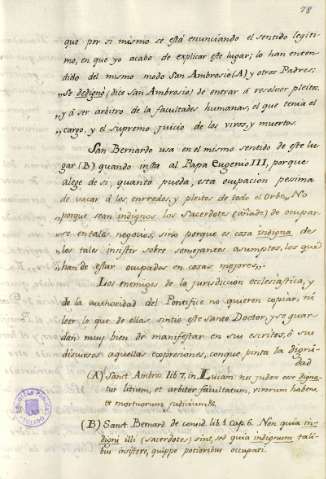 78
que por si mismo se está enunciando el sentido legiti-
mo, en que yo acabo de explicar este lugar; lo han enten-
dido del mismo modo San Ambrosio (A) y otros Padres:
"Se dedignó (dice San Ambrosio) de entrar á resolver pleitos,
"y á ser arbitro de la facultades humanas, el que tenia el
"cargo, y el supremo juicio de los vivos, y muertos.
San Bernardo usa en el mismo sentido de este lu-
gar (B) quando insta al Papa Eugenio III, porque
aleje de si, quanto pueda, esta ocupación pesima
de vacár á los enredos, y pleitos de todo el Orbe. "No
"porque sean indignos los Sacerdotes (añade) de ocupar-
se en tales negocios, sino porque es cosa indigna de
les tales insistir sobre semejantes asumptos, los que
han de estar ocupados en cosas mayores."
Los enemigos de la jurisdiccion eclesiástica, y
de la authoridad del Pontifice no quieren copiar, ni
leer lo que de ellas sintió este Santo Doctor, y se guar-
dan muy bien de manifestar en sus escritos, ó sus
discursos aquellas expresiones, con que pinta la digni-
dad
(A) Sanct. Ambro. lib. 7. in Lucam: nec judex esse digna-
tus litium, et arbiter facultatum, vivorum habens
et mortuorum judicium.
(B) Sanct. Bernard. de consid. lib. 1. cap. 6. Non quia in-
digni illi (Sacerdotes) sint, sed quia indignum tali-
bus insistere, quippe potioribus occupati.